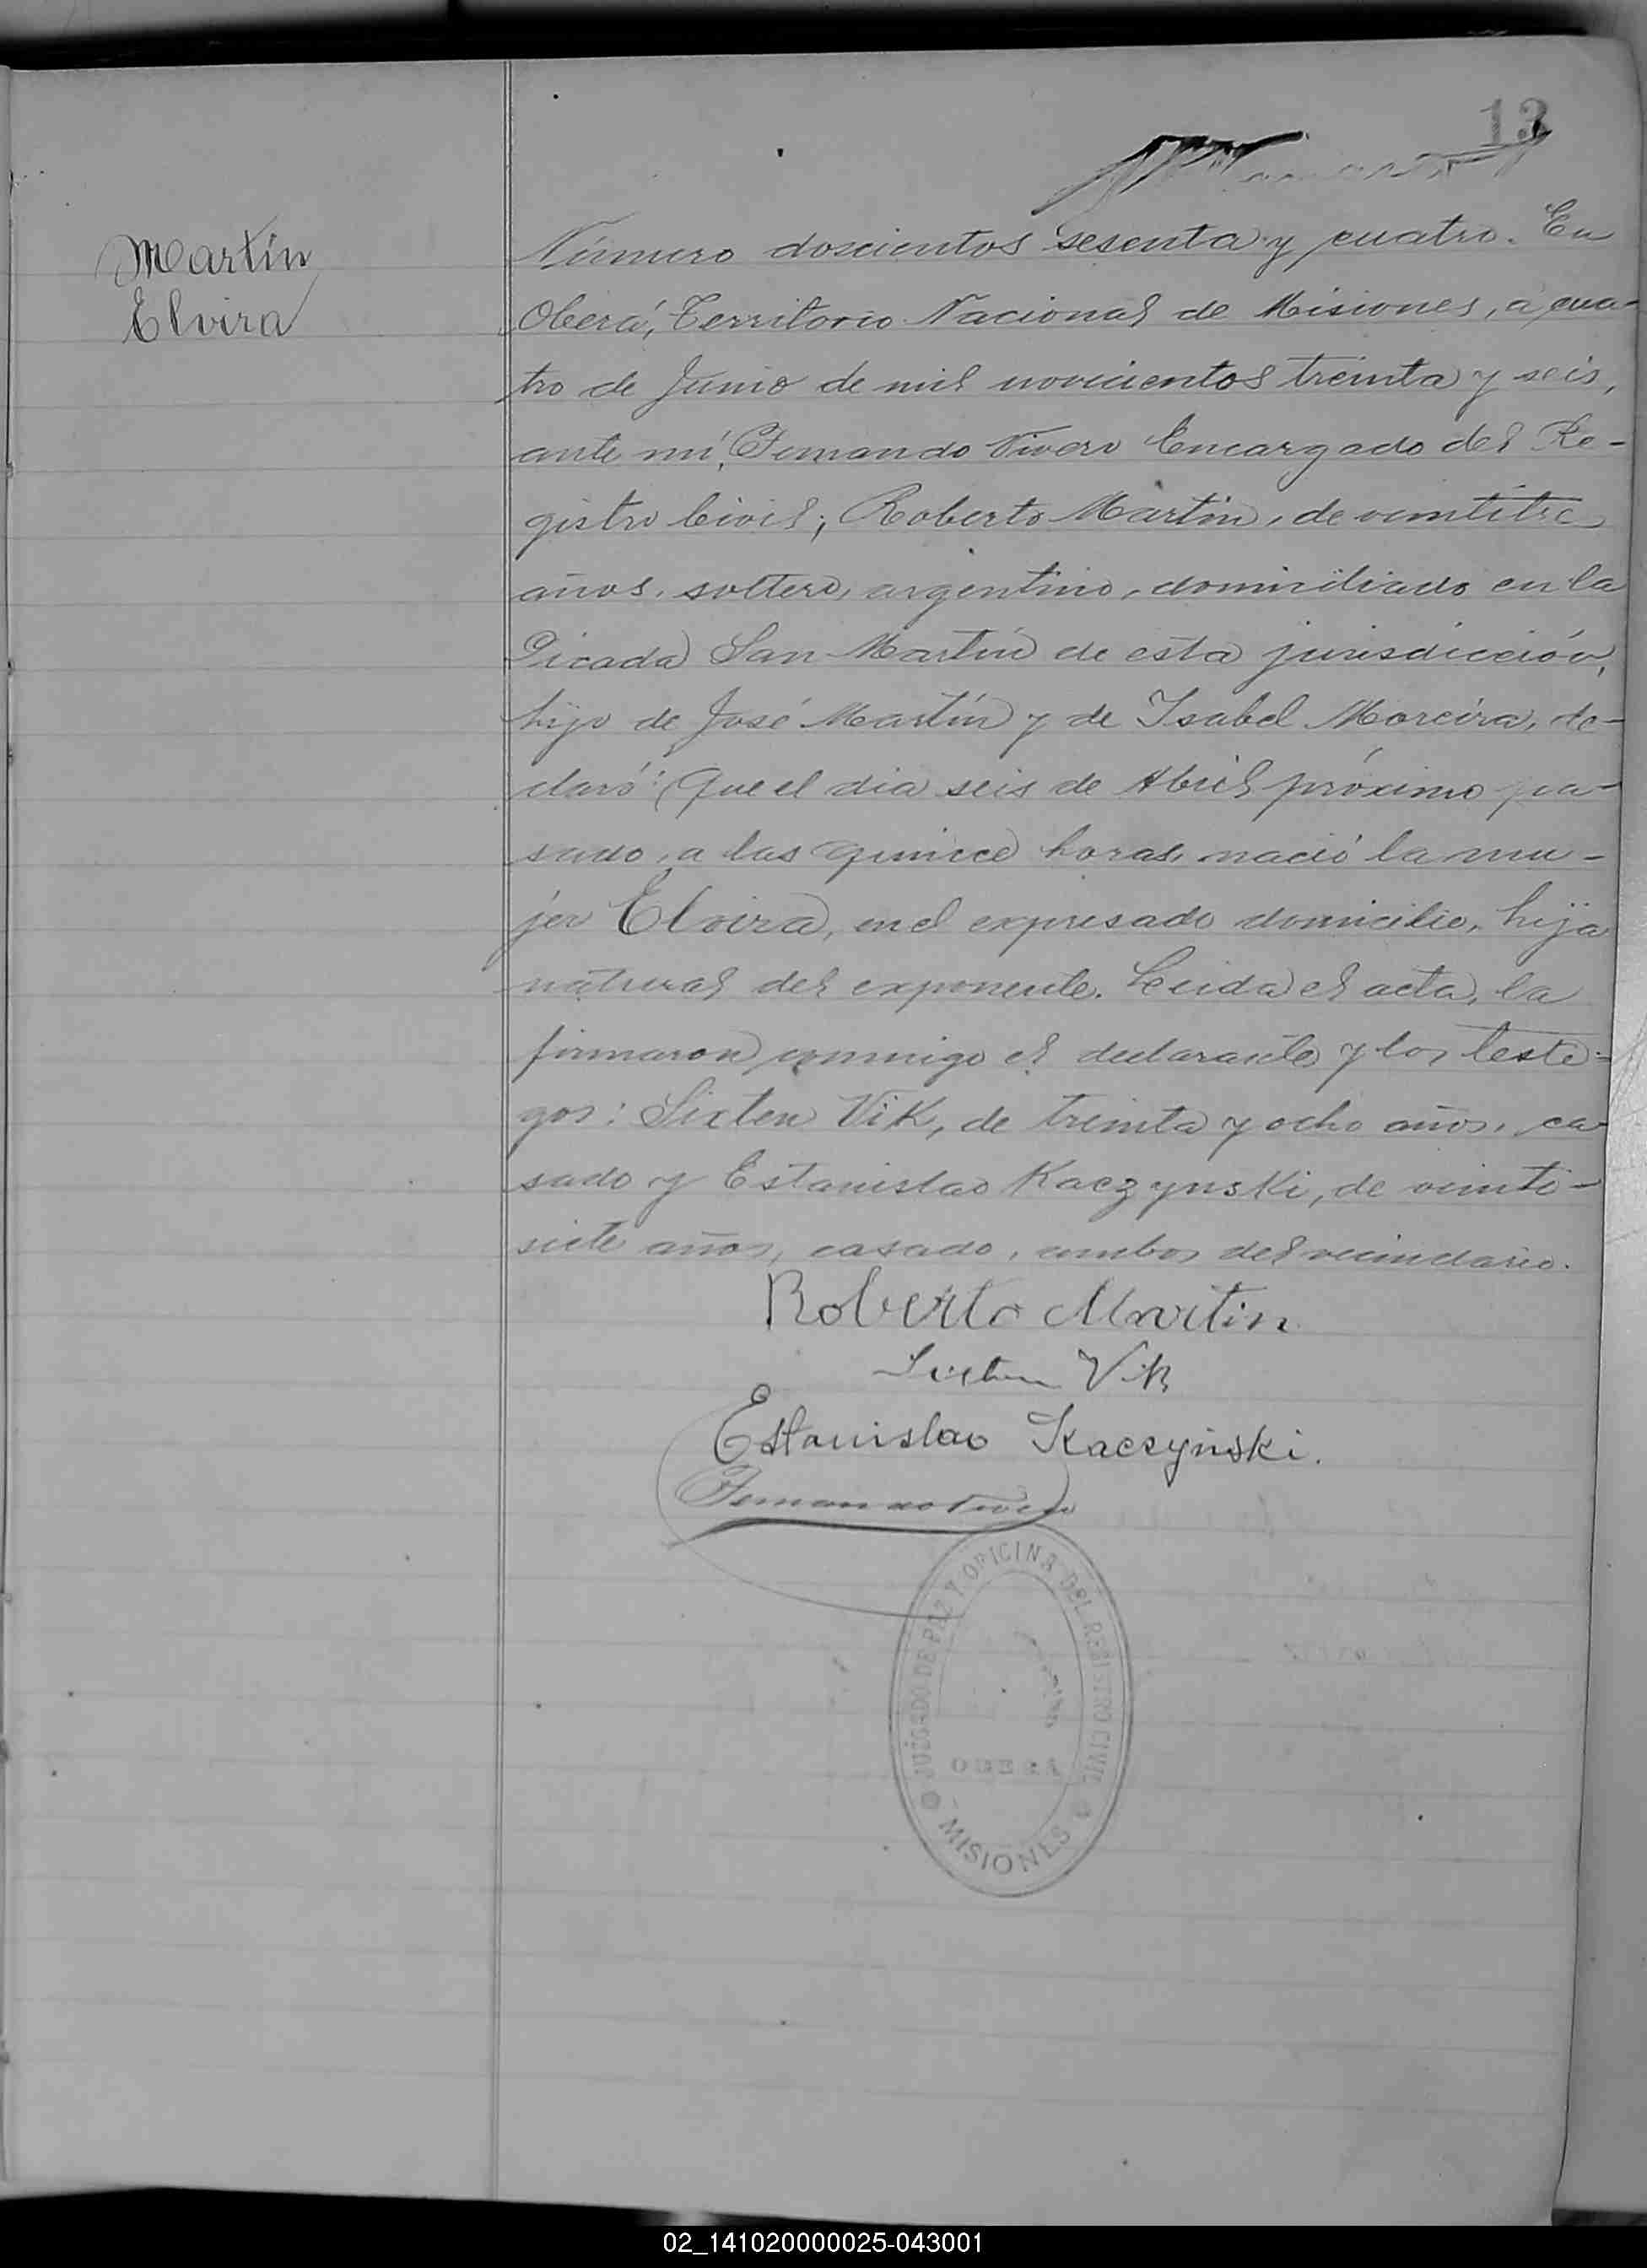 13
Martín
Elvira
Número doscientos sesenta y cuatro. En
Oberá, Territorio Nacional de Misiones, a cua-
tro de Junio de mil novecientos treinta y seis,
ante mí, Fernando Vivero Encargado del Re-
gistro Civil; Roberto Martín, de veintitres
años, soltero, argentino, domiciliado en la
Picada San Martín de esta jurisdicción,
hijo de José Martín y de Isabel Moreira, de-
claró: Que el día seis de Abril próximo pa-
sado, a las quince horas, nació la mu-
jer Elvira, en el expresado domicilio, hija
natural del exponente. Leida el acta, la
firmaron conmigo el declarante y los testi-
gos: Sixten Vik, de treinta y ocho años, ca-
sado y Estanislao Kaczynski, de veinti-
siete años, casado, ambos del vecindario.
Roberto Martin
Sixten Vik
Estanislao Kaczyński.
Fernando Vivero
JUZGADO DE PAZ Y OFICINA DEL REGISTRO CIVIL
OBERÁ
MISIONES
02_141020000025-043001